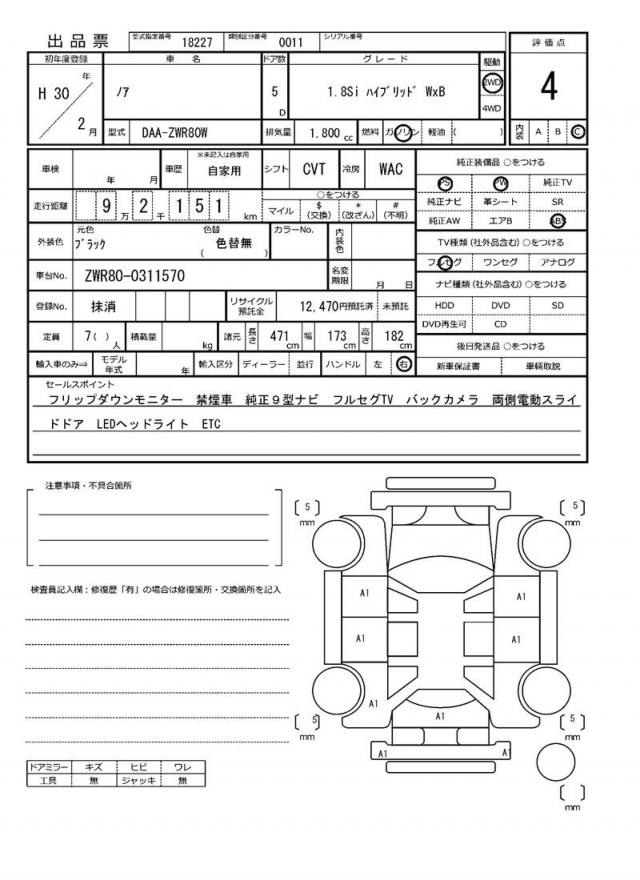 出品票 型式指定番号 18227 類別区分番号 0011 シリアル番号
評価点
4
内装 A B C
初年度登録 車名 ドア数 グレード 駆動
H 30 年 2 月
ﾉｱ
5 D
1.8Si ﾊｲﾌﾞﾘｯﾄﾞ WxB
2WD
4WD
型式 DAA-ZWR80W 排気量 1.800 cc 燃料 ガソリン 軽油 ( )
車検 年 月 車歴 ※未記入は自家用 自家用 シフト CVT 冷房 WAC
走行距離 9 万 2 千 151 km ○をつける
マイル $ (交換) * (改ざん) # (不明)
外装色 元色 ﾌﾞﾗｯｸ 色替 ( 色替無 ) カラーNo. 内装色
車台No. ZWR80-0311570 名変期限 月 日
登録No. 抹消 リサイクル預託金 12,470円預託済 未預託
定員 7( ) 人 積載量 kg 諸元 長さ 471 cm 幅 173 cm 高さ 182 cm
輸入車のみ⇒ モデル年式 年 輸入区分 ディーラー 並行 ハンドル 左 右
純正装備品 ○をつける
PS PW 純正TV
純正ナビ 革シート SR
純正AW エアB ABS
TV種類 (社外品含む) ○をつける
フルセグ ワンセグ アナログ
ナビ種類 (社外品含む) ○をつける
HDD DVD SD
DVD再生可 CD
後日発送品 ○をつける
新車保証書 車輌取説
セールスポイント
フリップダウンモニター 禁煙車 純正９型ナビ フルセグTV バックカメラ 両側電動スライ
ドドア LEDヘッドライト ETC
注意事項・不具合箇所
検査員記入欄：修復歴「有」の場合は修復箇所・交換箇所を記入
ドアミラー キズ ヒビ ワレ
工具 無 ジャッキ 無
[ 5 ] mm
[ 5 ] mm
A1
A1
A1
A1
A1
A1
A1
A1
[ 5 ] mm
[ 5 ] mm
[ ] mm